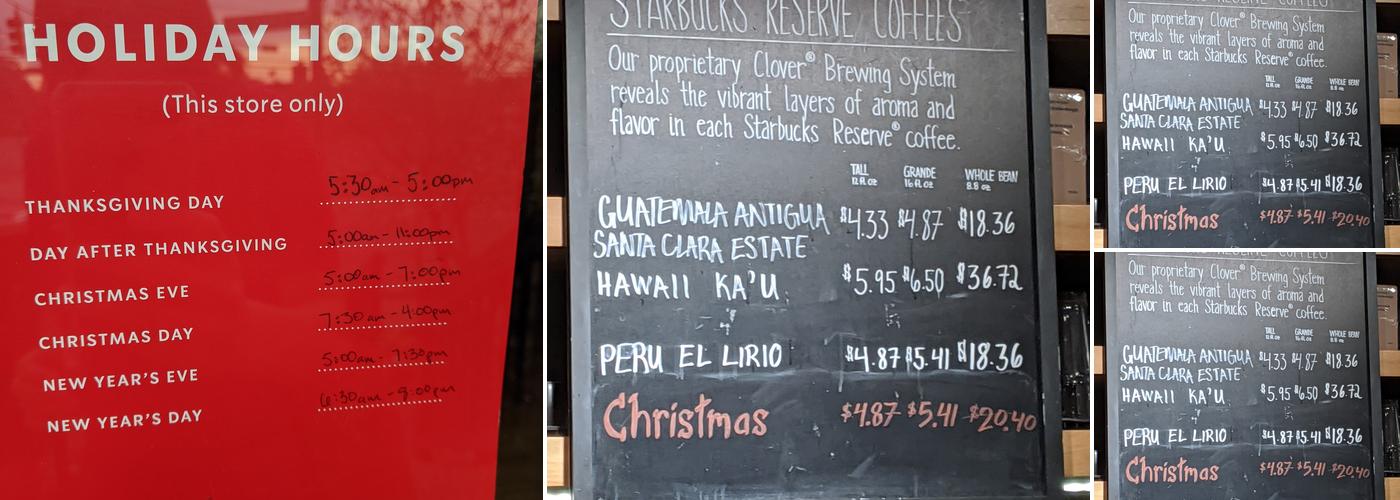 HOLIDAY HOURS
(This store only)
THANKSGIVING DAY 5:30am - 5:00pm
DAY AFTER THANKSGIVING 5:00am - 11:00pm
CHRISTMAS EVE 5:00am - 7:00pm
CHRISTMAS DAY 7:30am - 4:00pm
NEW YEAR'S EVE 5:00am - 7:30pm
NEW YEAR'S DAY 6:30am - 9:00pm
STARBUCKS RESERVE COFFEES
Our proprietary Clover® Brewing System
reveals the vibrant layers of aroma and
flavor in each Starbucks Reserve® coffee.
TALL GRANDE WHOLE BEAN
12 fl oz 16 fl oz 8.8 oz
GUATEMALA ANTIGUA $4.33 $4.87 $18.36
SANTA CLARA ESTATE
HAWAII KA'U $5.95 $6.50 $36.72
PERU EL LIRIO $4.87 $5.41 $18.36
Christmas $4.87 $5.41 $20.40
Our proprietary Clover® Brewing System
reveals the vibrant layers of aroma and
flavor in each Starbucks Reserve® coffee.
TALL GRANDE WHOLE BEAN
12 fl oz 16 fl oz 8.8 oz
GUATEMALA ANTIGUA $4.33 $4.87 $18.36
SANTA CLARA ESTATE
HAWAII KA'U $5.95 $6.50 $36.72
PERU EL LIRIO $4.87 $5.41 $18.36
Christmas $4.87 $5.41 $20.40
Our proprietary Clover® Brewing System
reveals the vibrant layers of aroma and
flavor in each Starbucks Reserve® coffee.
TALL GRANDE WHOLE BEAN
12 fl oz 16 fl oz 8.8 oz
GUATEMALA ANTIGUA $4.33 $4.87 $18.36
SANTA CLARA ESTATE
HAWAII KA'U $5.95 $6.50 $36.72
PERU EL LIRIO $4.87 $5.41 $18.36
Christmas $4.87 $5.41 $20.40